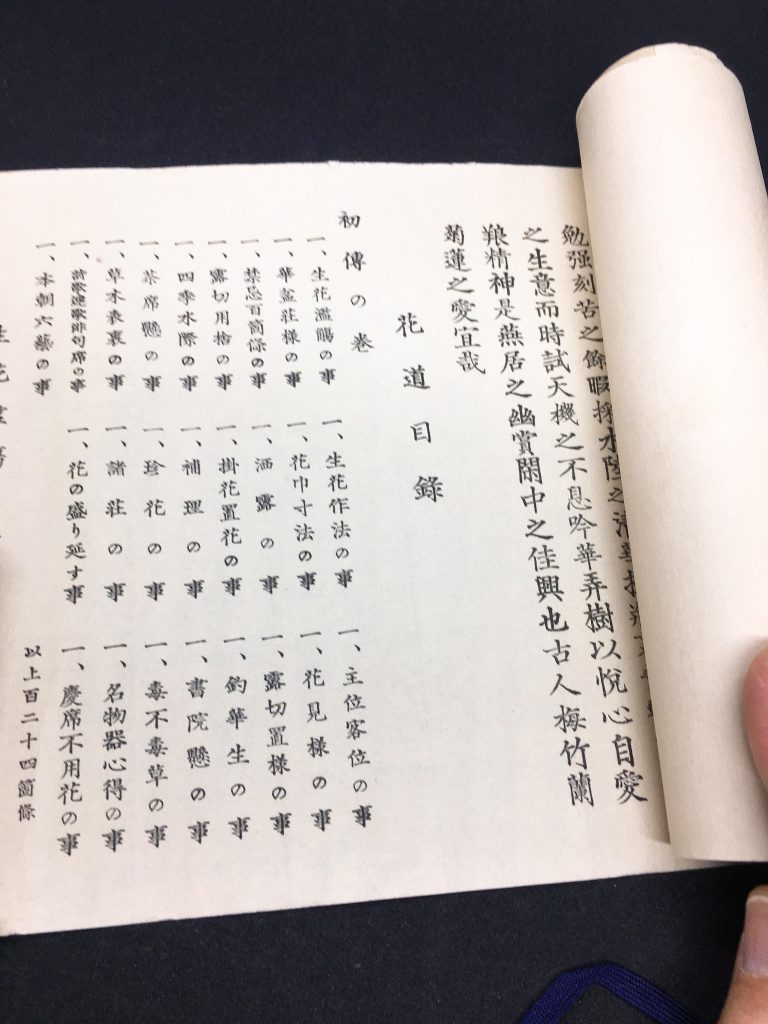 勉强刻苦之餘暇採水陸之清華
之生意而時試天機之不息吟華弄樹以悅心自愛
娘精神是燕居之幽賞閑中之佳興也古人梅竹蘭
菊蓮之愛宜哉
花道目錄
初傳の巻
一、生花濫觴の事
一、生花作法の事
一、主位客位の事
一、華盆荘様の事
一、花巾寸法の事
一、花見様の事
一、禁忌百箇條の事
一、洒露の事
一、露切置様の事
一、露切用捨の事
一、掛花置花の事
一、釣華生の事
一、四季水際の事
一、補理の事
一、書院懸の事
一、茶席懸の事
一、珍花の事
一、毒不毒草の事
一、草木表裏の事
一、諸荘の事
一、名物器心得の事
一、詩歌連歌俳句席の事
一、花の盛り延す事
一、慶席不用花の事
一、本朝六藝の事
以上百二十四箇條